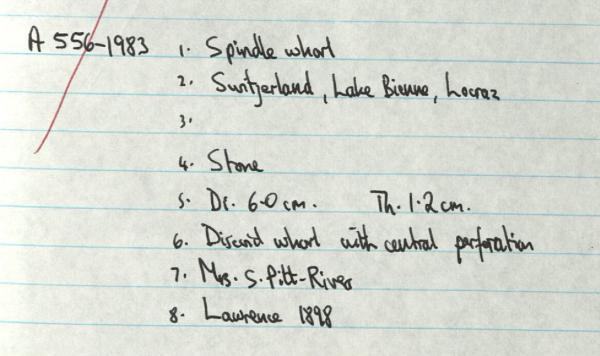 A 556-1983 1. Spindle whorl
2. Switzerland, Lake Bienne, Locraz
3.
4. Stone
5. Di. 6.0 cm. Th. 1.2 cm.
6. Discoid whorl with central perforation
7. Mrs. S. Pitt-River
8. Lawrence 1898